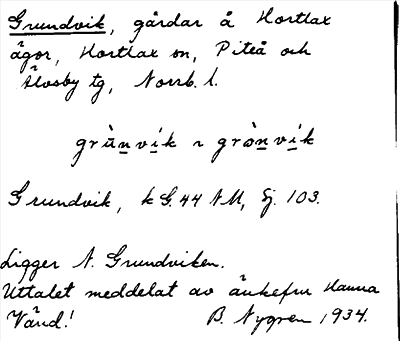 Grundvik, gårdar å Hortlax
ägor, Hortlax sn, Piteå och
Älvsby tg, Norrb. l.
grùnvík ~ grònvík
Grundvik, k G. 44 NM, Ej. 103.
Ligger N. Grundviken.
Uttalet meddelat av änkefru Hanna
Vänd! B. Nygren 1934.